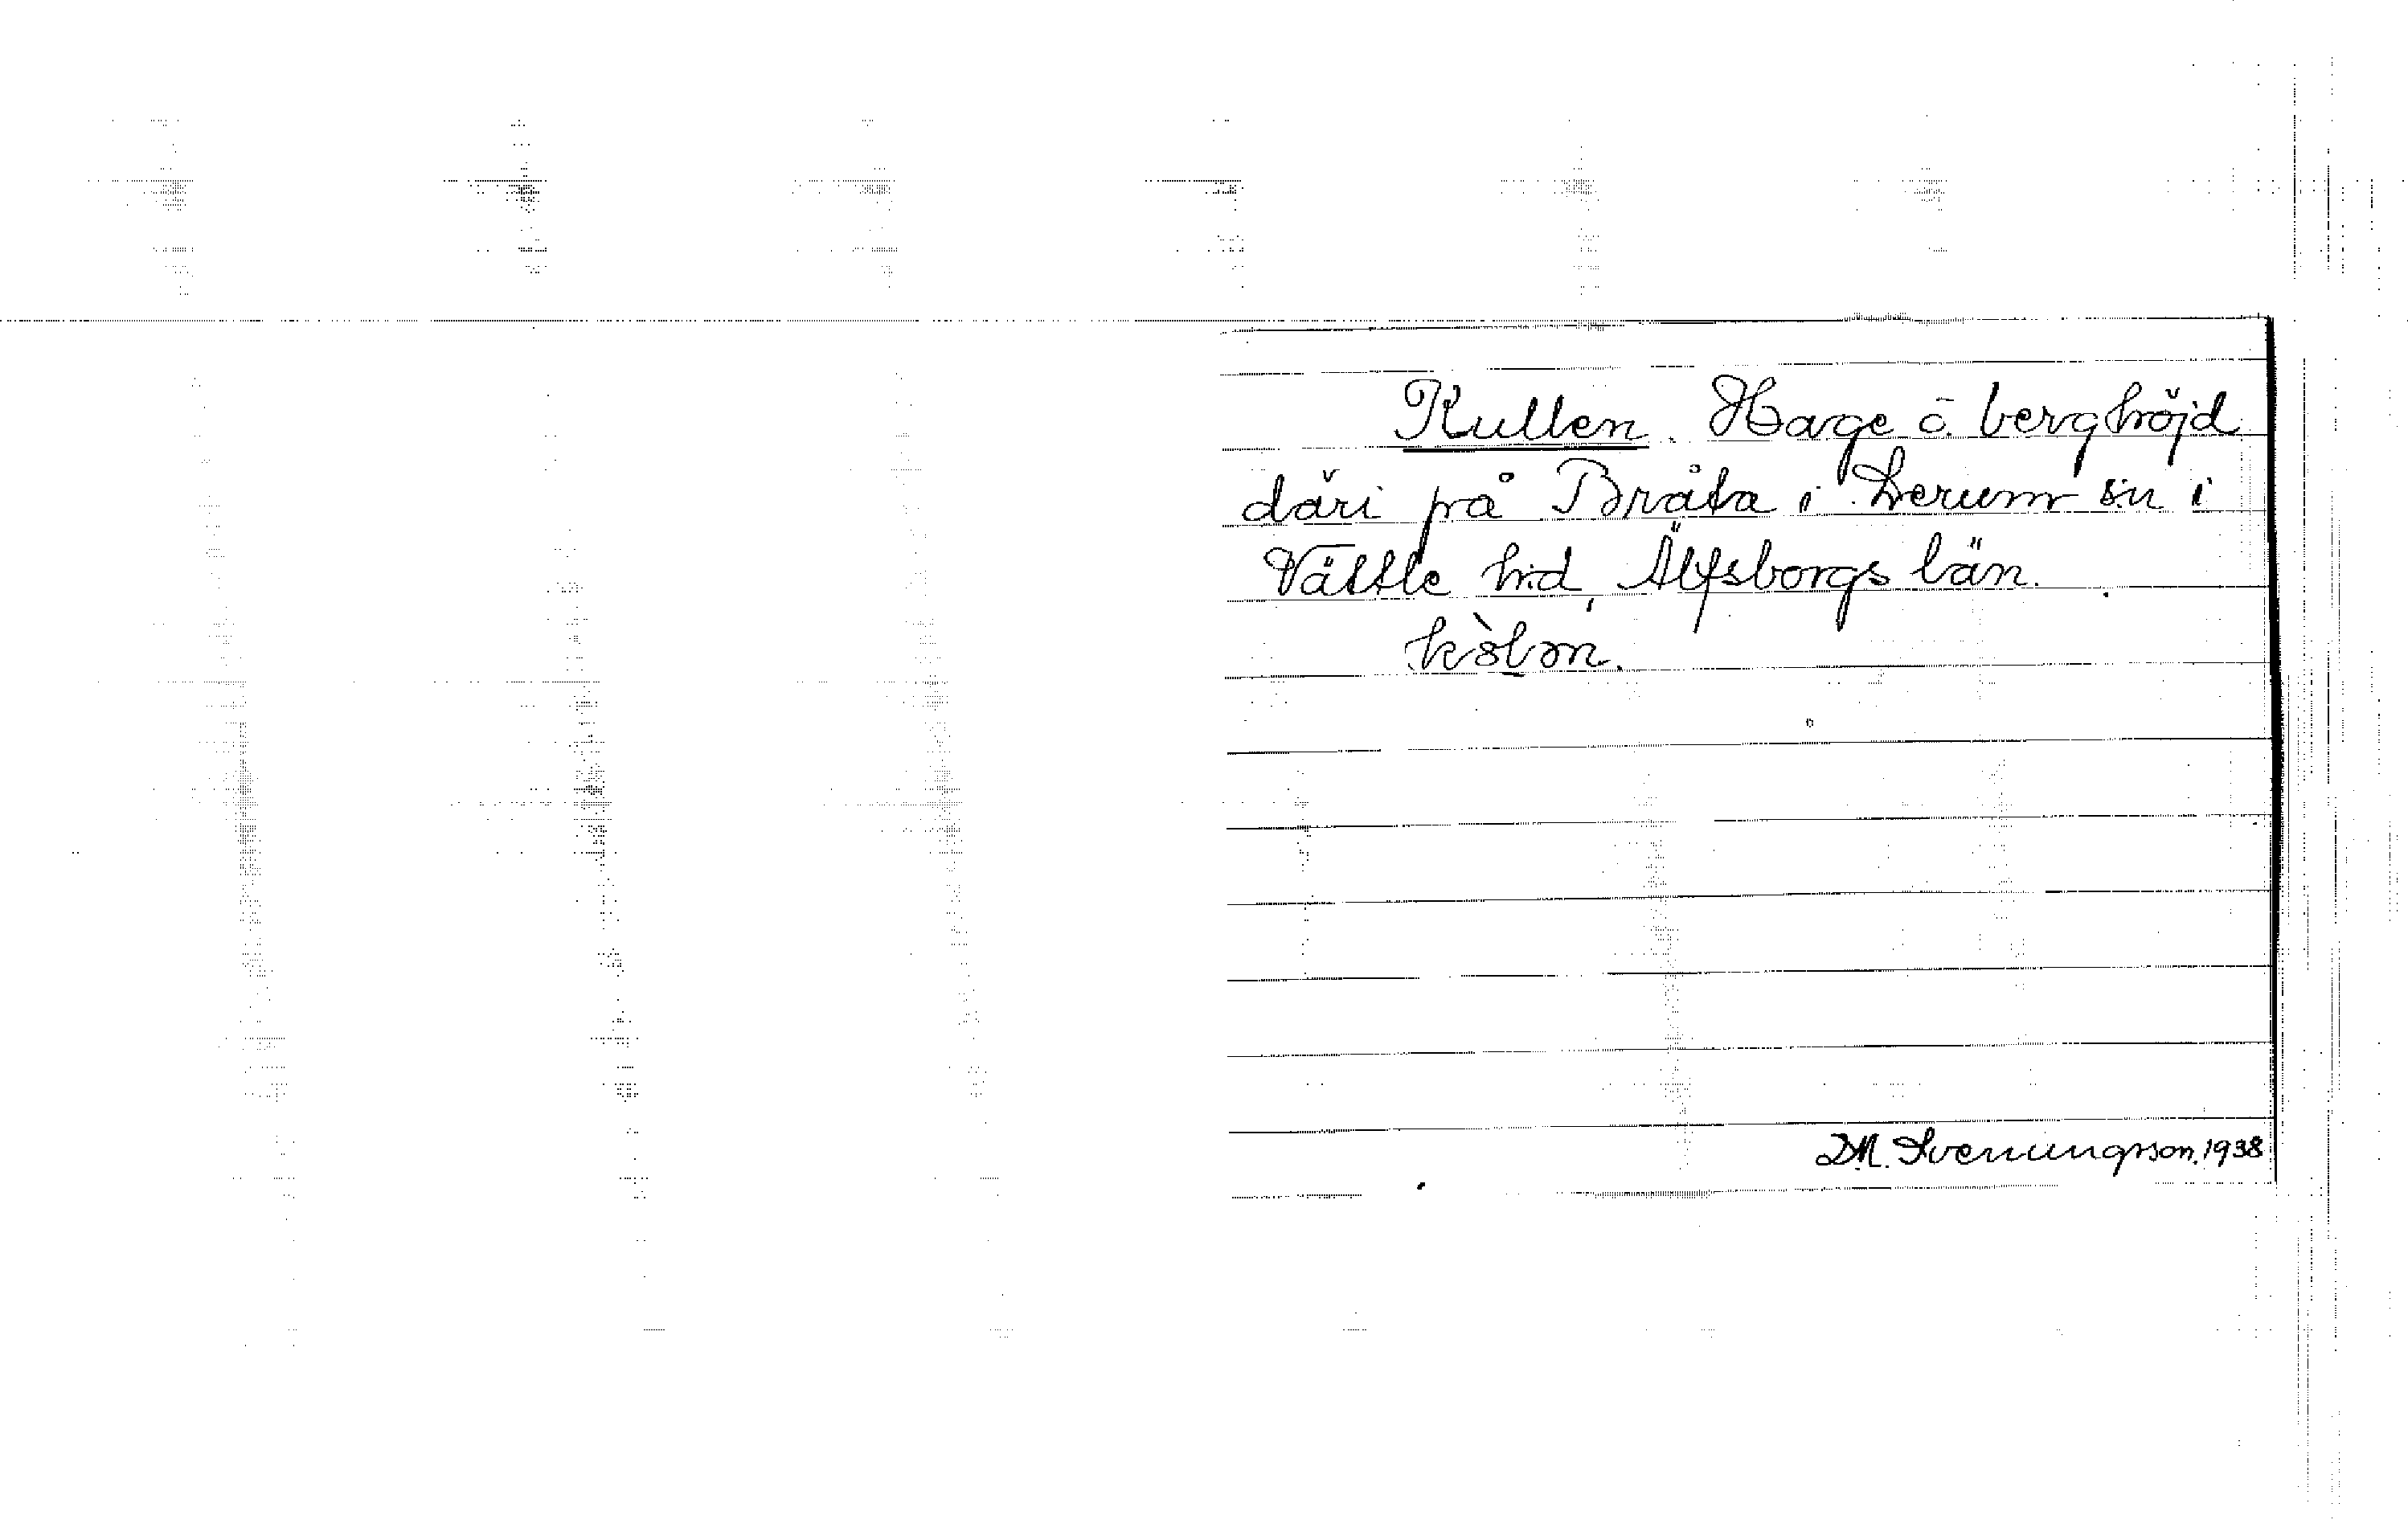 Kullen. Hage o. berghöjd
däri på Bråta i Lerum sn i
Vättle hd, Älfsborgs län.
kòlən.
D.M. Svenungsson. 1938